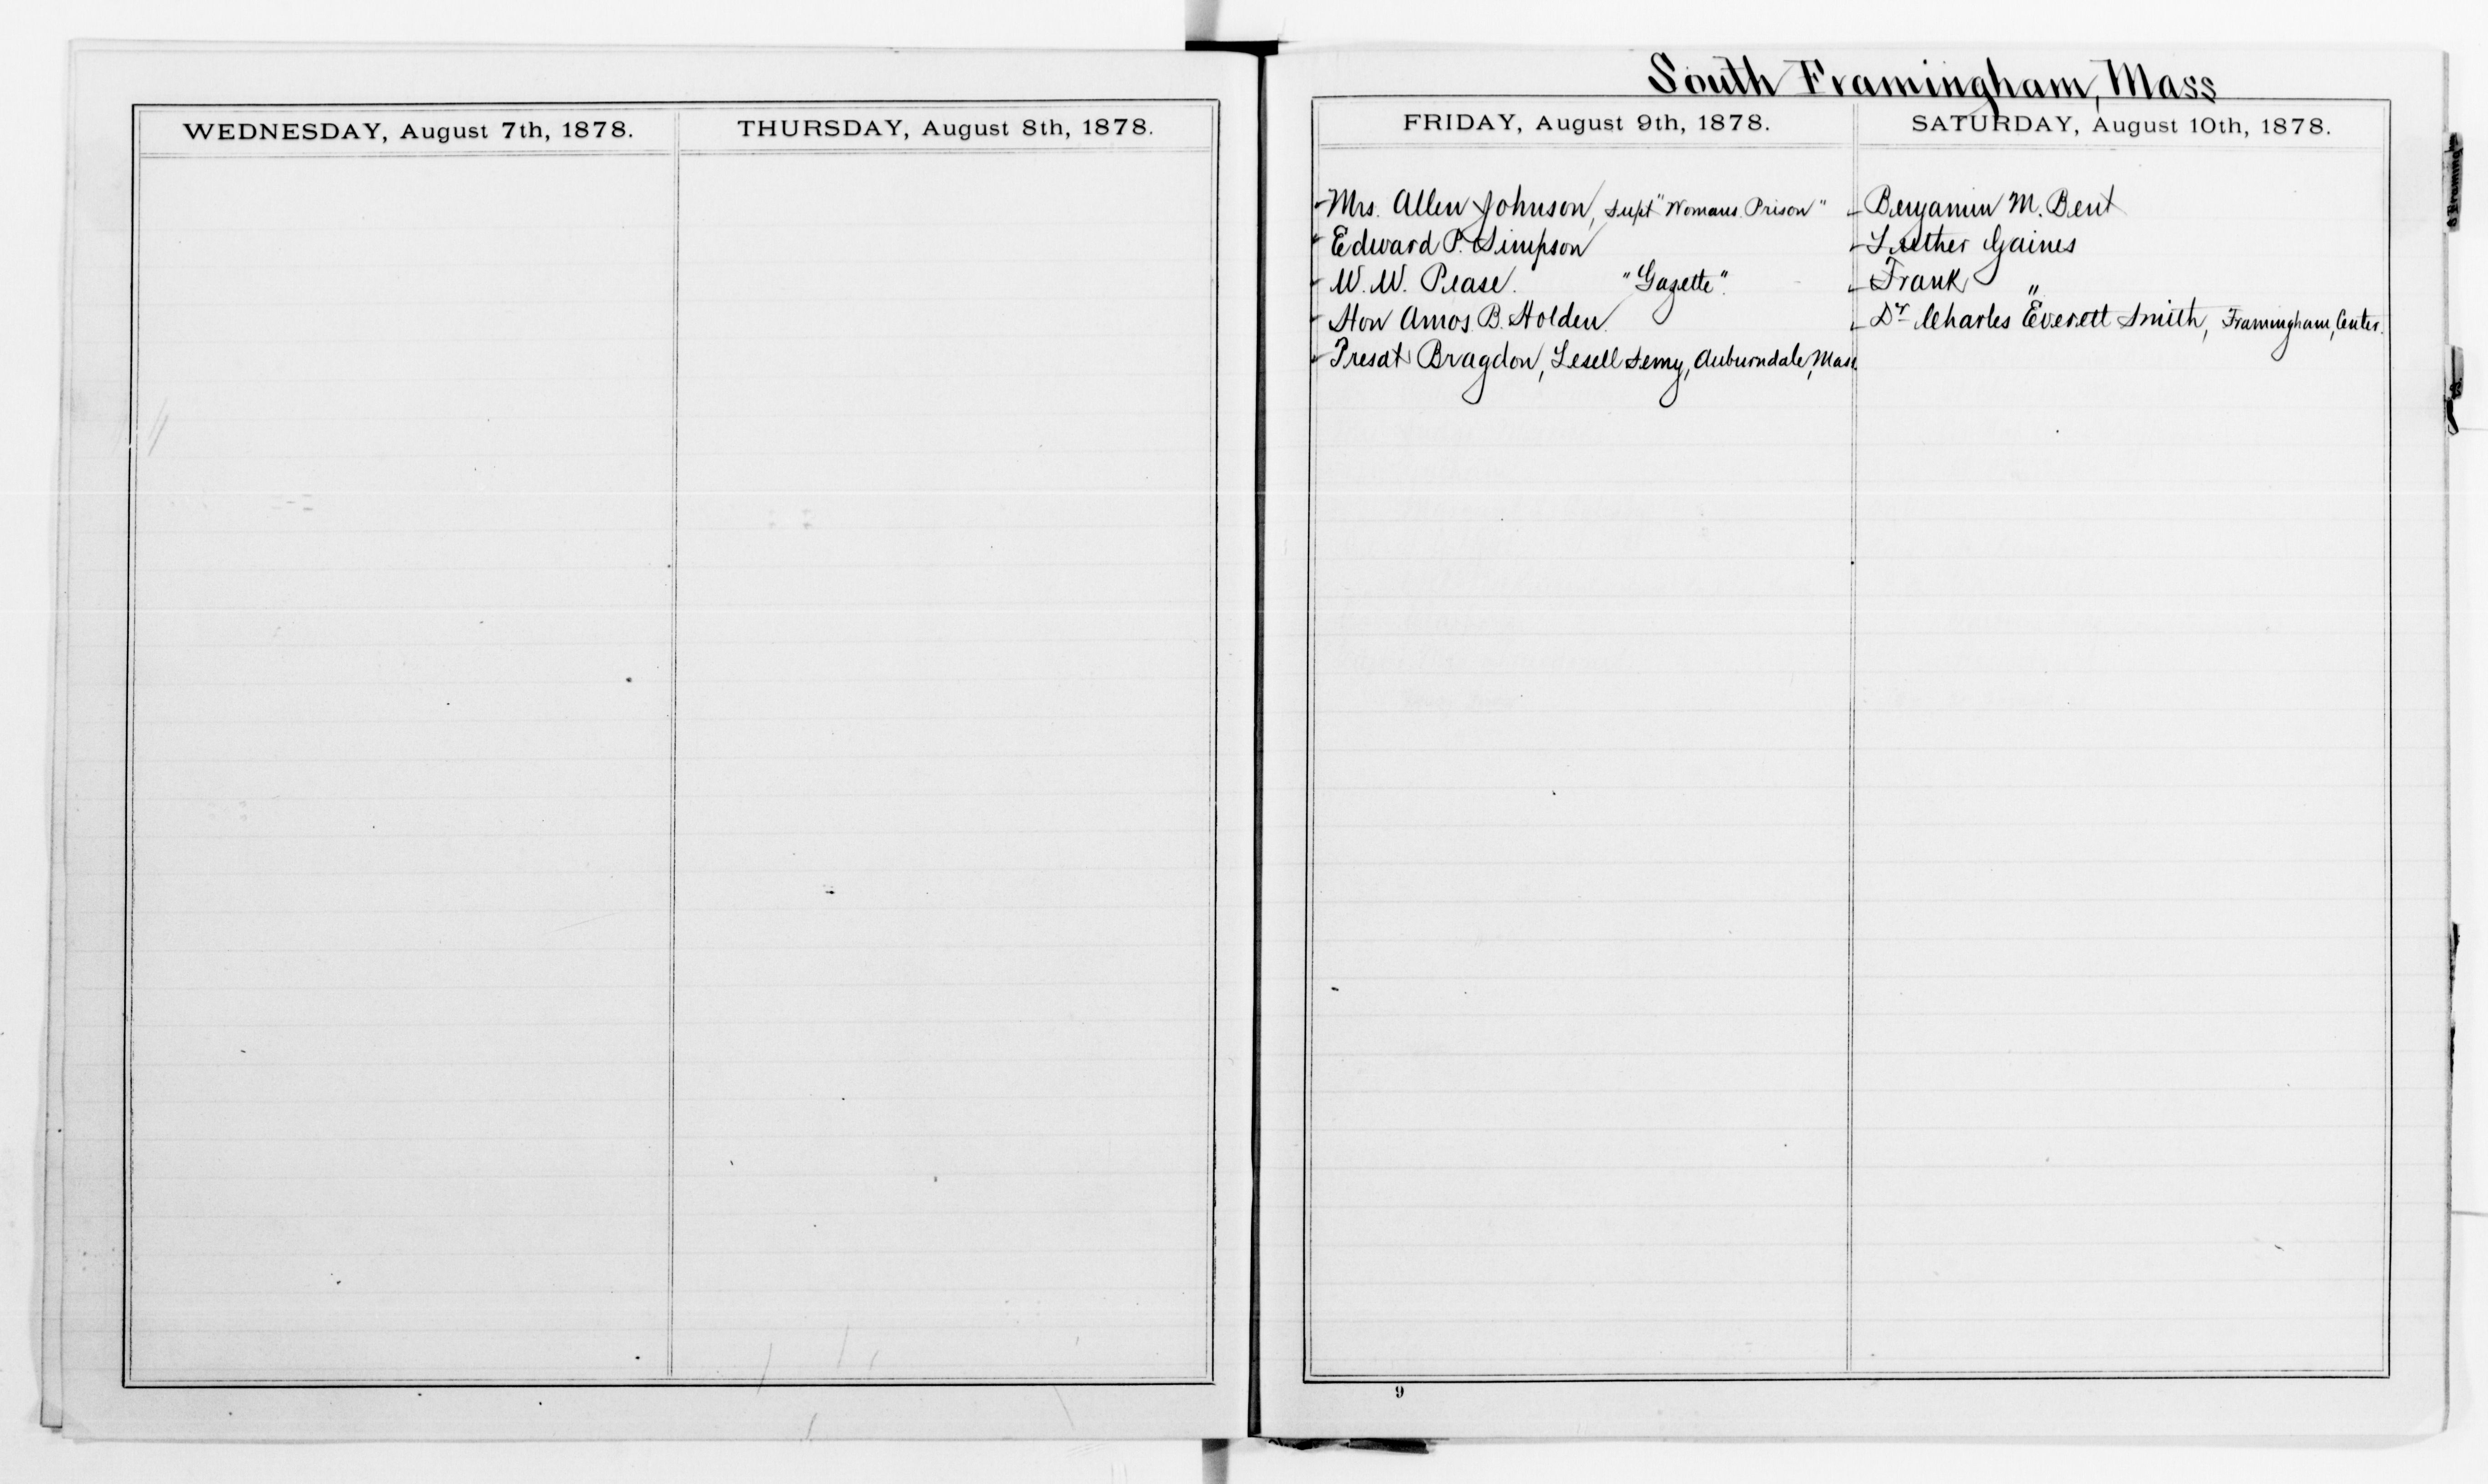 WEDNESDAY, August 7th, 1878.
THURSDAY, August 8th, 1878.
South Framingham, Mass
FRIDAY, August 9th, 1878.
Mrs. Allen Johnson, Supt "Womans Prison"
Edward P. Simpson
W. W. Pease. "Gazette".
Hon Amos B. Holden
Presdt Bragdon, Lesell Semy, Auburndale, Mass.
SATURDAY, August 10th, 1878.
Benjamin M. Bent
Luther Gaines
Frank "
Dr Charles Everett Smith, Framingham, Center.
9